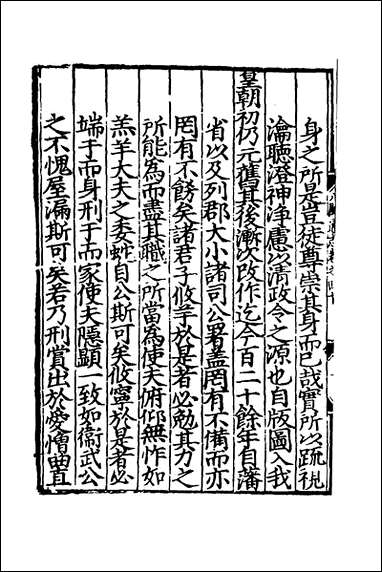 身之所是豈徒尊崇其身而已哉實所以䟽視
瀹聽澄神浄慮以清政令之源也自版圖入我
皇朝初仍元舊其後漸次改作迄今百二十餘年自藩
省以及列郡大小諸司公署盖罔有不備而亦
罔有不飭矣諸君子攸芋於是者必勉其力之
所能為而盡其職之所當為使夫俯仰無怍如
羔羊大夫之委蛇自公斯可矣攸寧於是者必
端于而身刑于而家使夫隱顯一致如衛武公
之不愧屋漏斯可矣若乃刑賞出於愛憎曲直